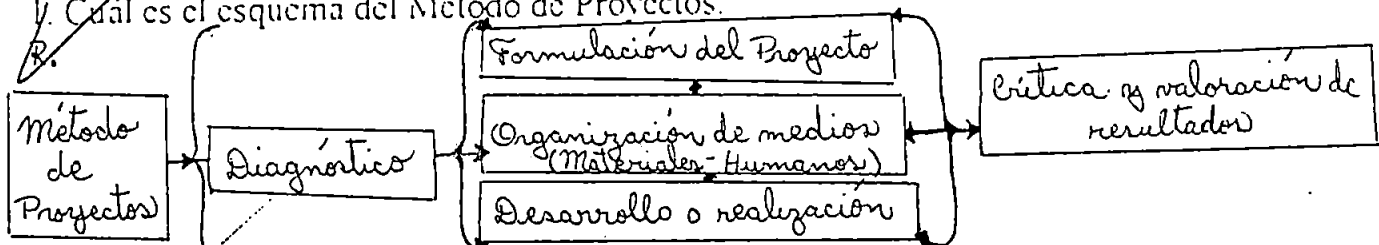 1. Cuál es el esquema del Método de Proyectos.
R.
Método
de
Proyectos
Diagnóstico
Formulación del Proyecto
Organización de medios
(Materiales-Humanos)
Desarrollo o realización
Crítica y valoración de
resultados